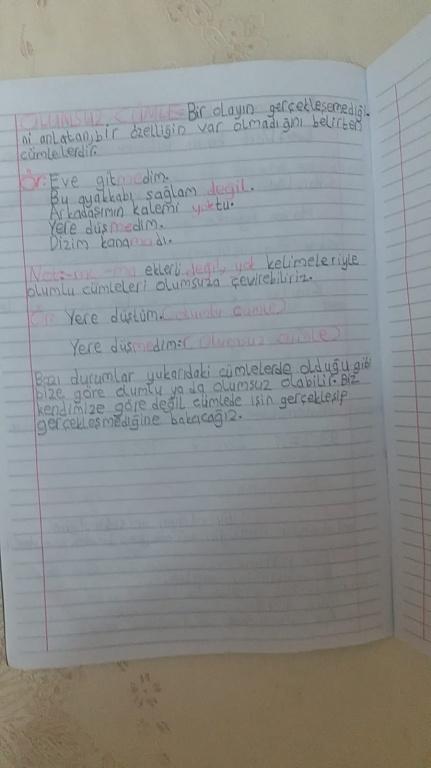 OLUMSUZ CÜMLE: Bir olayın gerçekleşemediği-
ni anlatan, bir özelliğin var olmadığını belirten
cümlelerdir.
Ör: Eve gitmedim.
Bu ayakkabı sağlam değil.
Arkadaşımın kalemi yoktu.
Yere düşmedim.
Dizim kanamadı.
Not: -me, -ma ekleri, değil, yok kelimeleriyle
olumlu cümleleri olumsuza çevirebiliriz.
Ör: Yere düştüm. (olumlu cümle)
Yere düşmedim. (olumsuz cümle)
Bazı durumlar yukarıdaki cümlelerde olduğu gibi
bize göre olumlu ya da olumsuz olabilir. Biz
kendimize göre değil cümlede işin gerçekleşip
gerçekleşmediğine bakacağız.